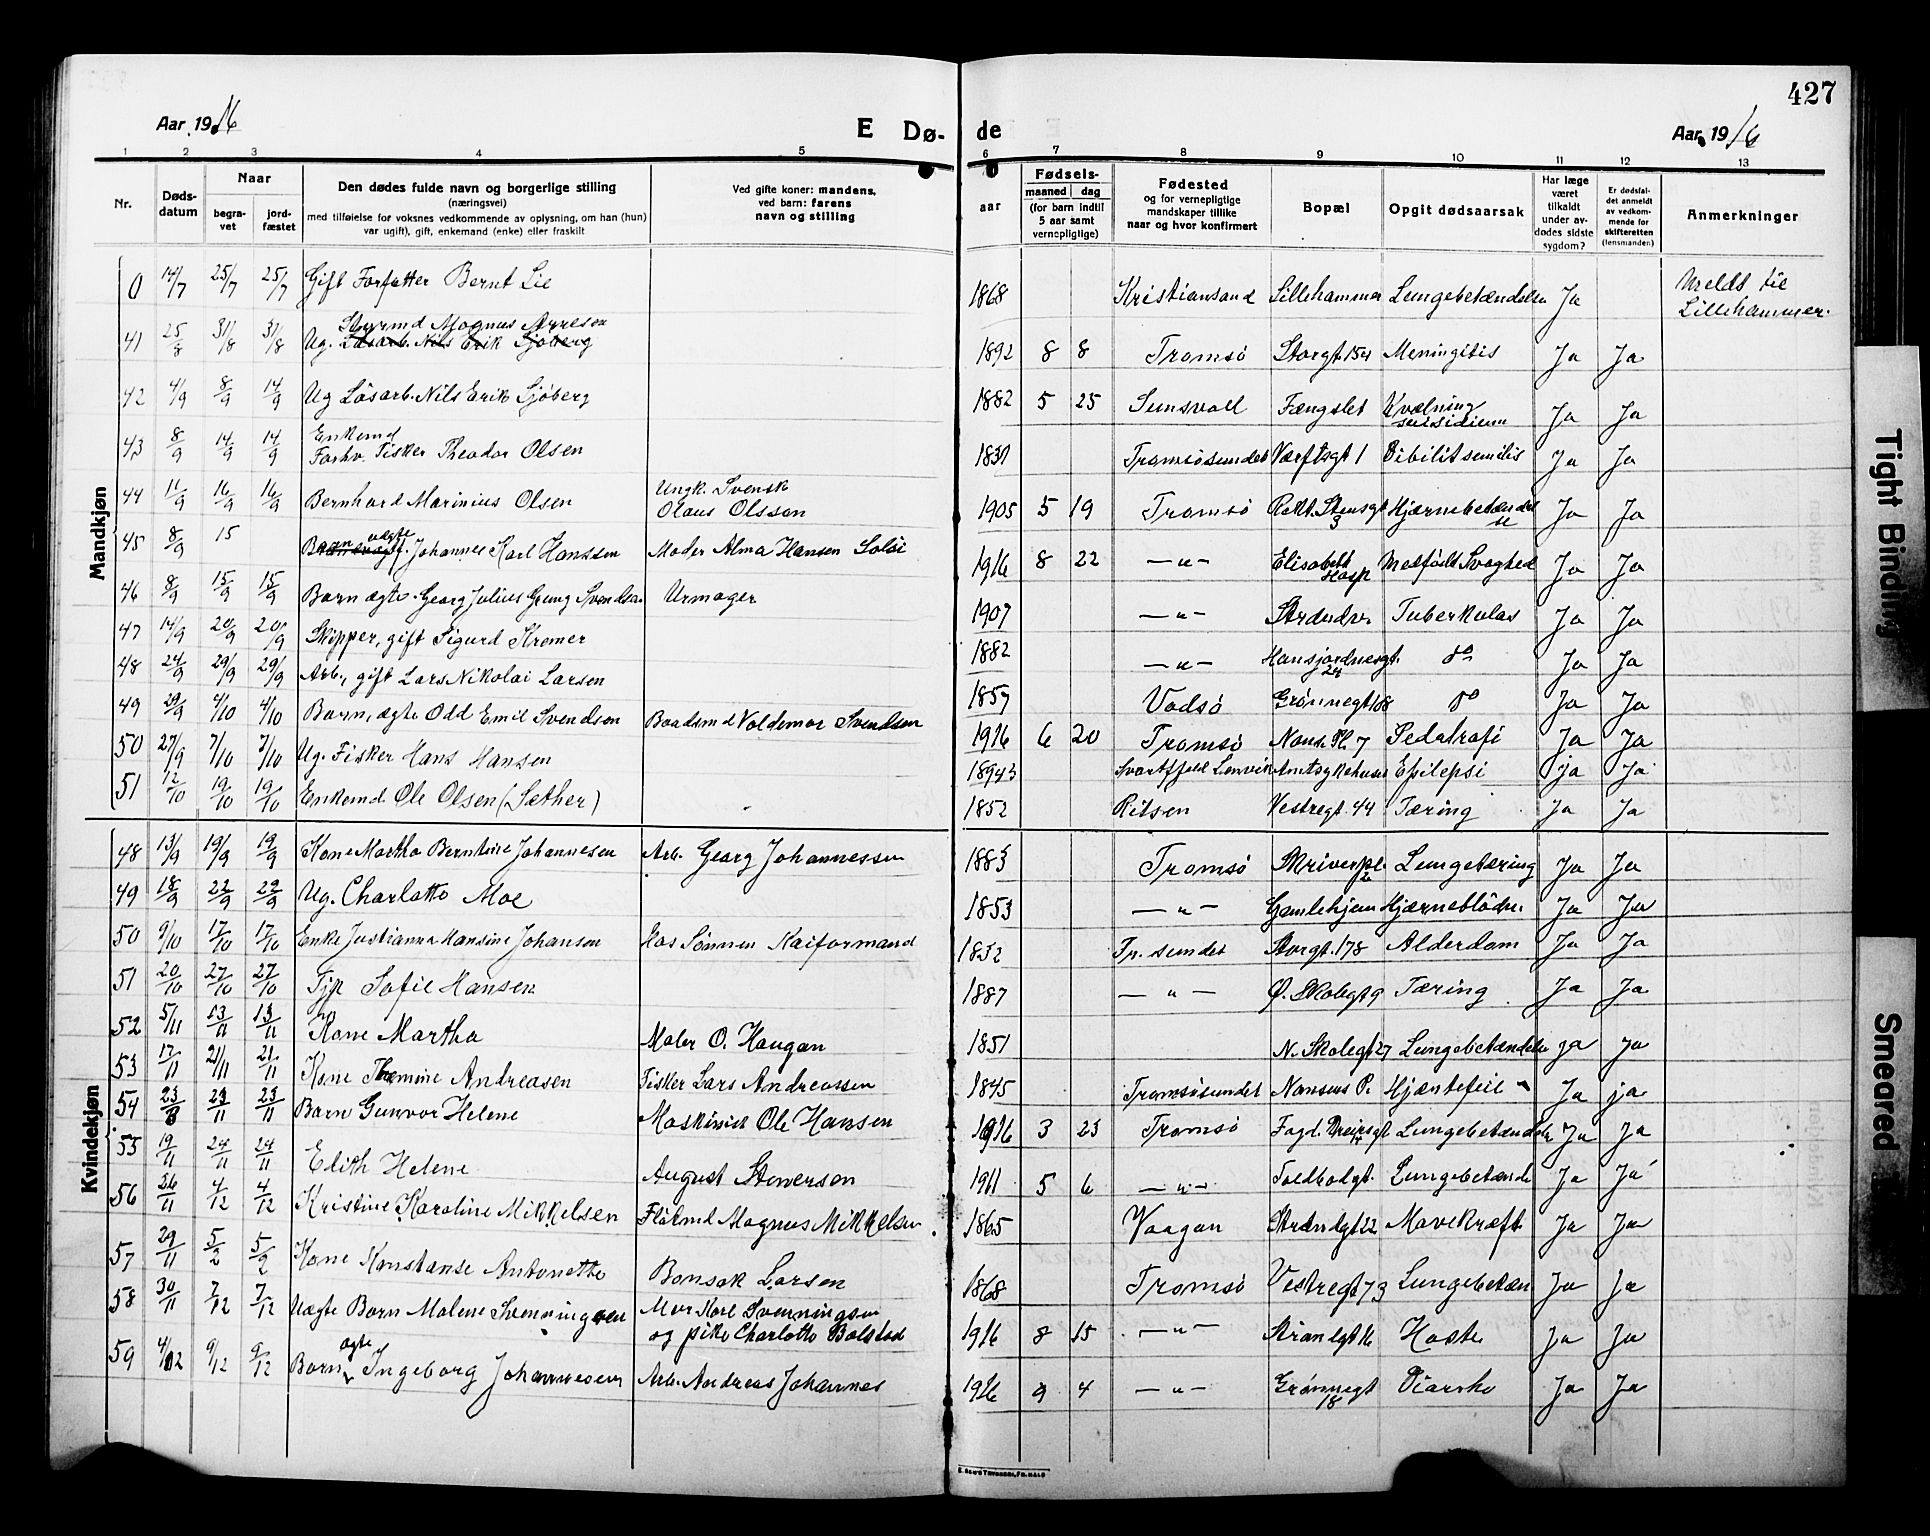 427
Aar 1916
E Dø-
de
Aar 1916
1 2 3 4 5 6 7 8 9 10 11 12 13
Nr.
Døds-
datum
Naar
begra-
vet
jord-
fæstet
Den dødes fulde navn og borgerlige stilling
(næringsvei)
med tilføielse for voksnes vedkommende av oplysning, om han (hun)
var ugift), gift, enkemand (enke) eller fraskilt
Ved gifte koner: mandens,
ved barn: farens
navn og stilling
aar
Fødsels-
maaned dag
(for barn indtil
5 aar samt
vernepligtige)
Fødested
og for vernepligtige
mandskaper tillike
naar og hvor konfirmert
Bopæl
Opgit dødsaarsak
Har læge
været
tilkaldt
under av-
dødes sidste
sygdom?
Er dødsfal-
det anmeldt
av vedkom-
mende for
skifteretten
(lensmanden)
Anmerkninger
Mandkjøn
0 14/7 25/7 25/7 Gift Forfatter Bernt Lie 1868 Kristiansand Lillehammer Lungebetændelse Ja Meldt til
Lillehammer.
Styrmd Magnus Arnesen
41 25/8 31/8 31/8 Ug. Løsarb. Nils Erik Sjøberg 1892 8 8 Tromsø Storgt. 154 Meningitis Ja Ja
42 4/9 8/9 14/9 Ug Løsarb. Nils Erik Sjöberg 1882 5 25 Sunsvall Fængslet Kvælning
suisidium Ja Ja
Enkemd
43 8/9 14/9 14/9 Forhv. Fisker Theodor Olsen 1837 Tromsøsundet Værftsgt 1 Ja Ja
44 11/9 16/9 16/9 Bernhard Marinius Olsen Ungk. Svensk
Olaus Olsson 1905 5 19 Tromsø Hjærnebetændel
se Ja Ja
45 8/9 15 uægte Johannes Karl Hanssen Moder Alma Hansen 1916 8 22 —"— Elisabeth
Hosp Medfødt Svaghed Ja Ja
46 8/9 15/9 15/9 Barn ægte Georg Julius Svendsen Urmager 1907 —"— Tuberkulos Ja Ja
47 14/9 20/9 20/9 Skipper, gift Sigurd Kromer 1882 —"— Hansjordnesgt.
24 do Ja Ja
48 24/9 29/9 29/9 Arb., gift Lars Nikolai Larsen 1859 Vadsø Grønnegt 108 do Ja Ja
49 29/9 4/10 4/10 Barn, ægte Odd Emil Svendsen Baadsmd Valdemar Svendsen 1916 6 20 Tromsø Nans. Pl. 7 Pedatrofi Ja Ja
50 27/9 7/10 7/10 Ug. Fisker Hans Hansen Lenvik Amtsykehuset Epilepsi ja ja
51 12/10 19/10 19/10 Enkemd Ole Olsen (Sæther) 1852 Vestregt. 44 Tæring Ja Ja
Kvindekjøn
48 13/9 19/9 19/9 Kone Martha Berntine Johannesen Arb. Georg Johannessen 1883 Tromsø Skriverpl.
2 Lungetæring Ja Ja
49 18/9 22/9 22/9 Ug. Charlotte Moe 1853 —"— Gamlehjem Hjærneblödn. Ja Ja
50 9/10 17/10 17/10 Enke Justianna Hansine Johansen Hos Sønnen Kaiformand 1832 Tr. sundet Storgt. 178 Alderdom Ja Ja
51 20/10 27/10 27/10 Tjp Sofie Hansen 1887 —"— Ø. Skolegt 9 Tæring Ja Ja
52 5/11 13/11 13/11 Kone Martha Maler O. Haugan 1851 N. Skolegt 27 Lungebetændelse ja ja
53 17/11 21/11 21/11 Kone Andreasen Fisker Lars Andreassen 1845 Tromsøsundet Nansens P. Hjærtefeil Ja ja
54 23/11 23/11 Barn Gunvor Helene Maskinist Ole Hansen 1916 3 23 Tromsø Lungebetændelse Ja Ja
55 19/11 24/11 24/11 Edith Helene August Stenersen 1911 5 6 —"— Toldbodgt. Lungebetændel Ja Ja
56 26/11 4/12 4/12 Kristine Karoline Mikkelsen Magnus Mikkelsen 1865 Vaagan Strandgt 22 Mavekræft Ja Ja
57 29/11 5/2 5/2 Kone Konstanse Antonette Bansak Larsen 1868 Tromsø Vestregt 73 Lungebetæn Ja Ja
58 30/11 7/12 7/12 Uægte Barn Malene Svenningsen Mur Karl Svenningsen
og pike Charlotte Bolstad 1916 8 15 —"— Strandgt 16 Hoste Ja Ja
ægte
59 4/12 9/12 9/12 Barn Ingeborg Johannesen Arb. Andreas Johannes 1916 9 4 —"— Grønnegt
18 Diarrhe Ja Ja
Tight Binding
Smeared